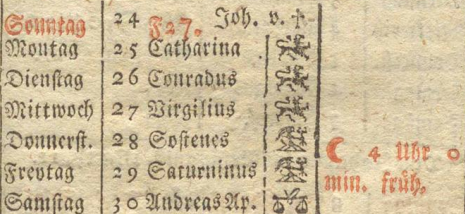 Sonntag 24 F27. Joh. v. ✝
Montag 25 Catharina
Dienstag 26 Conradus
Mittwoch 27 Virgilius
Donnerst. 28 Sostenes
Freytag 29 Saturninus
Samstag 30 Andreas Ap.
☾ 4 Uhr 0
min. früh,